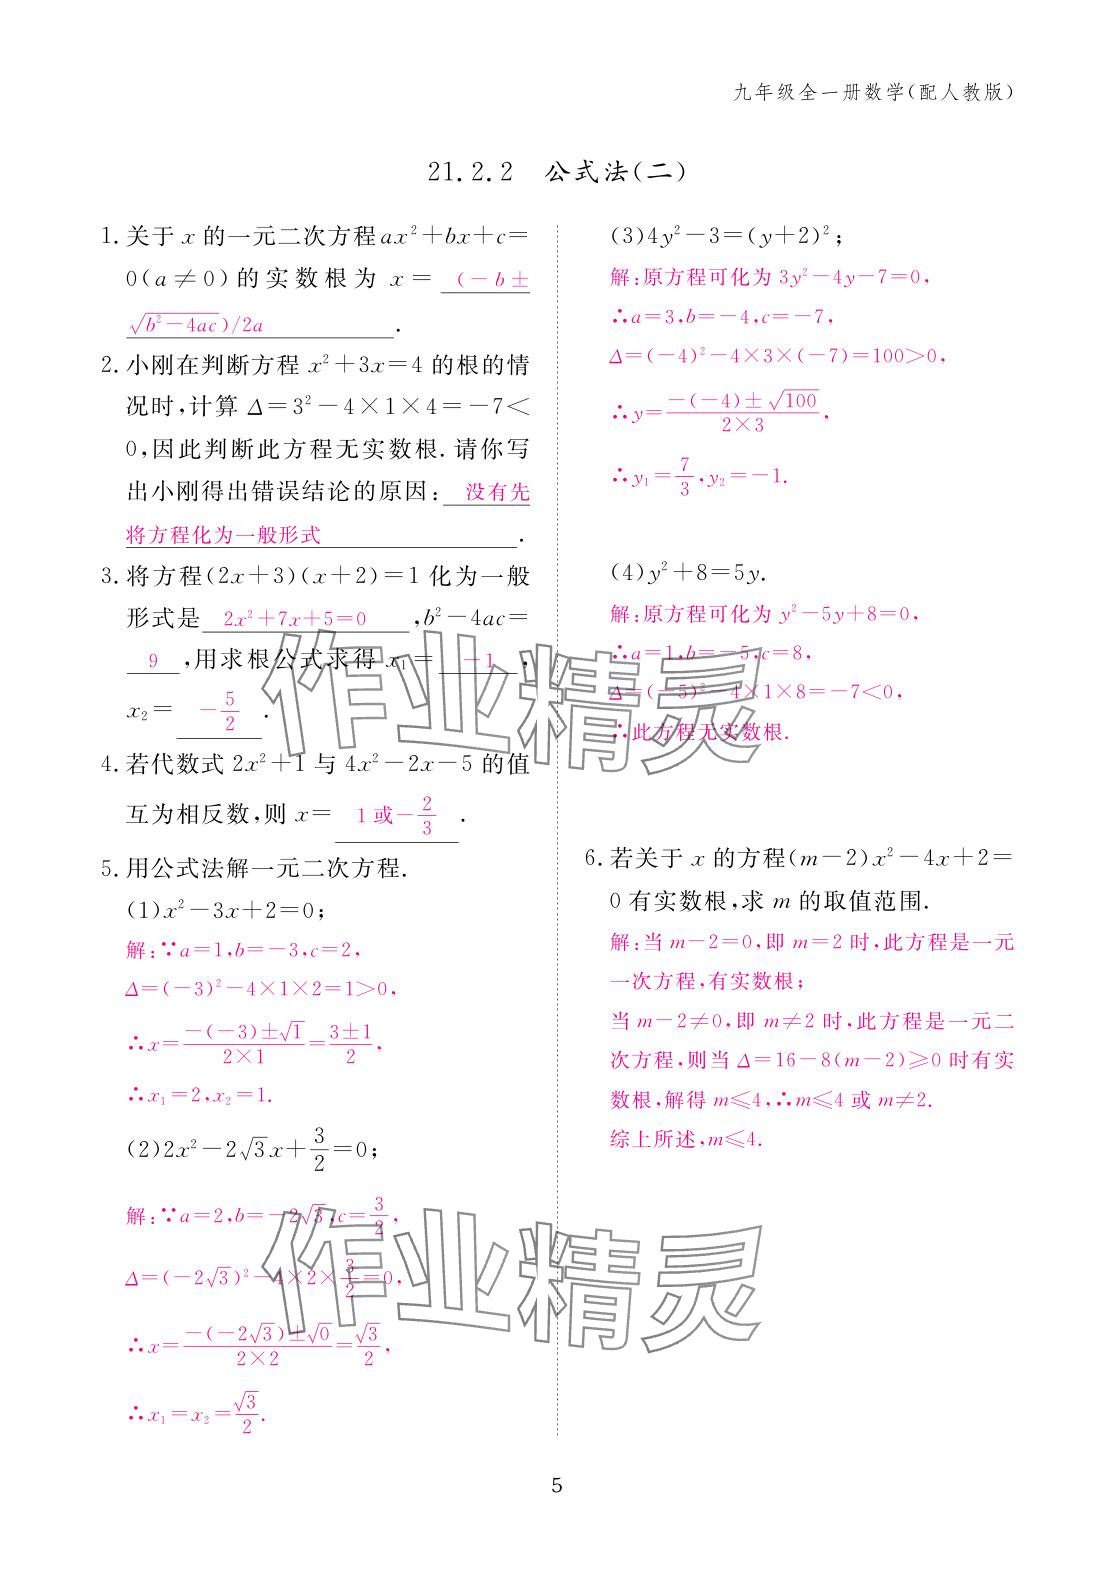 九年级全一册数学(配人教版)
21.2.2 公式法(二)
1. 关于 x 的一元二次方程ax²+bx+c=
0(a≠0)的实数根为 x= (-b±
√(b²-4ac))/2a .
2. 小刚在判断方程 x²+3x=4 的根的情
况时,计算 Δ=3²-4×1×4=-7<
0,因此判断此方程无实数根.请你写
出小刚得出错误结论的原因: 没有先
将方程化为一般形式 .
3. 将方程(2x+3)(x+2)=1 化为一般
形式是 2x²+7x+5=0 ,b²-4ac=
9 ,用求根公式求得 x₁= -1 ,
x₂= -5/2 .
4. 若代数式 2x²+1 与 4x²-2x-5 的值
互为相反数,则 x= 1 或-2/3 .
5. 用公式法解一元二次方程.
(1)x²-3x+2=0;
解:∵a=1,b=-3,c=2,
Δ=(-3)²-4×1×2=1>0,
∴x=(-(-3)±√1)/(2×1)=(3±1)/2,
∴x₁=2,x₂=1.
(2)2x²-2√3x+3/2=0;
解:∵a=2,b=-2√3,c=3/2,
Δ=(-2√3)²-4×2×3/2=0,
∴x=(-(-2√3)±√0)/(2×2)=√3/2,
∴x₁=x₂=√3/2.
(3)4y²-3=(y+2)²;
解:原方程可化为 3y²-4y-7=0,
∴a=3,b=-4,c=-7,
Δ=(-4)²-4×3×(-7)=100>0,
∴y=(-(-4)±√100)/(2×3),
∴y₁=7/3,y₂=-1.
(4)y²+8=5y.
解:原方程可化为 y²-5y+8=0,
∴a=1,b=-5,c=8,
Δ=(-5)²-4×1×8=-7<0,
∴此方程无实数根.
6. 若关于 x 的方程(m-2)x²-4x+2=
0 有实数根,求 m 的取值范围.
解:当 m-2=0,即 m=2 时,此方程是一元
一次方程,有实数根;
当 m-2≠0,即 m≠2 时,此方程是一元二
次方程,则当 Δ=16-8(m-2)≥0 时有实
数根,解得 m≤4,∴m≤4 或 m≠2.
综上所述,m≤4.
作业精灵
作业精灵
5